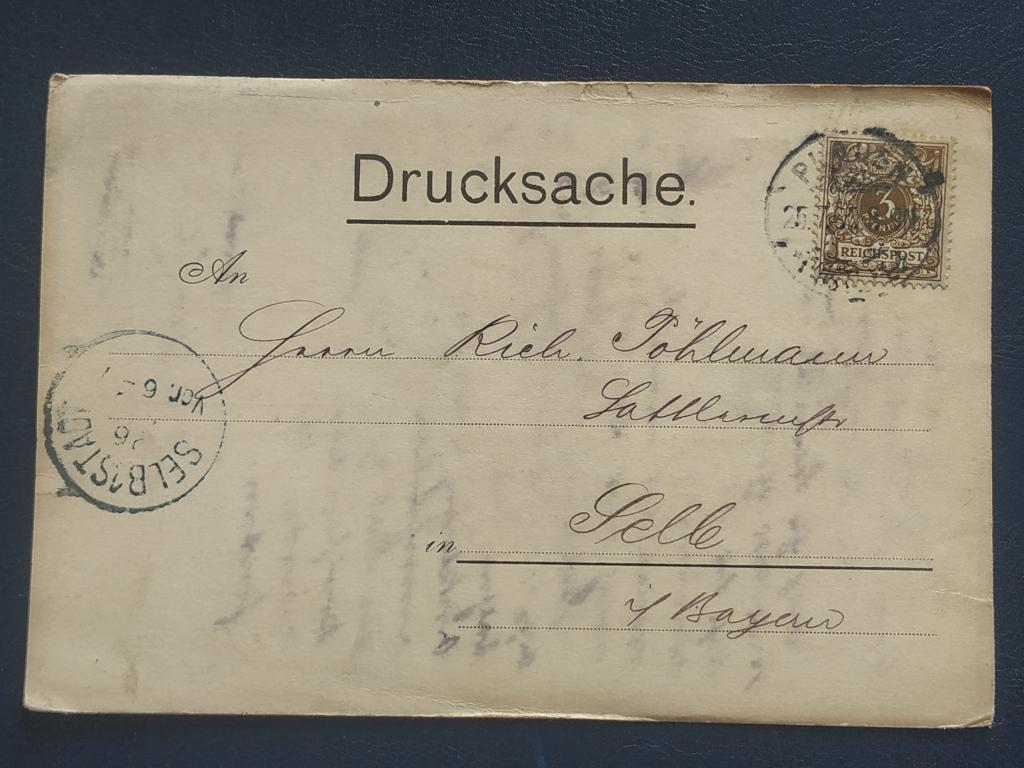 Drucksache.
3
PFENNIG
REICHSPOST
25.
An
Herrn Rich. Pöhlmann
Sattlermstr
SELB 1 STADT
26
VOR 6-7
in Selb
i/ Bayern